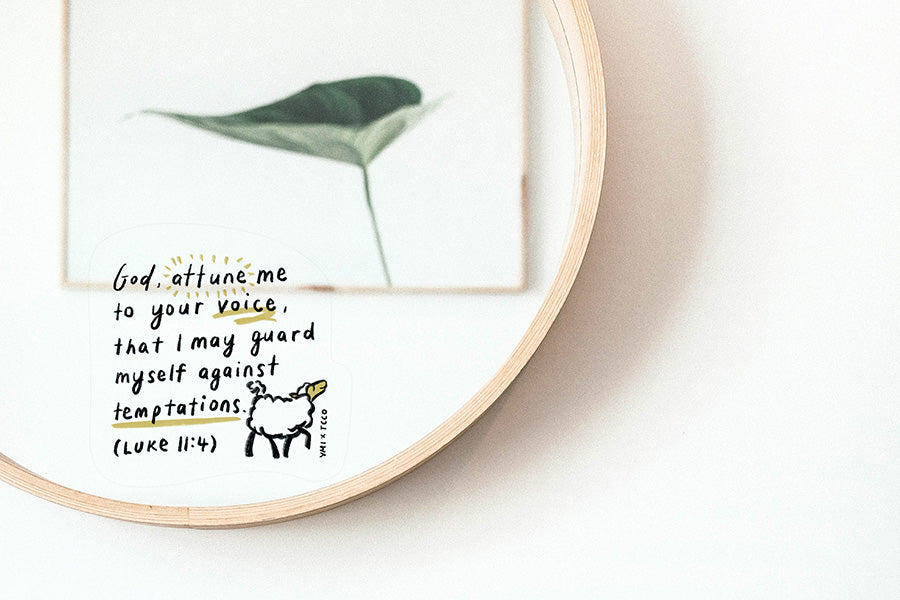 God, attune me
to your voice,
that I may guard
myself against
temptations.
(LUKE 11:4)
YMI X TCCO